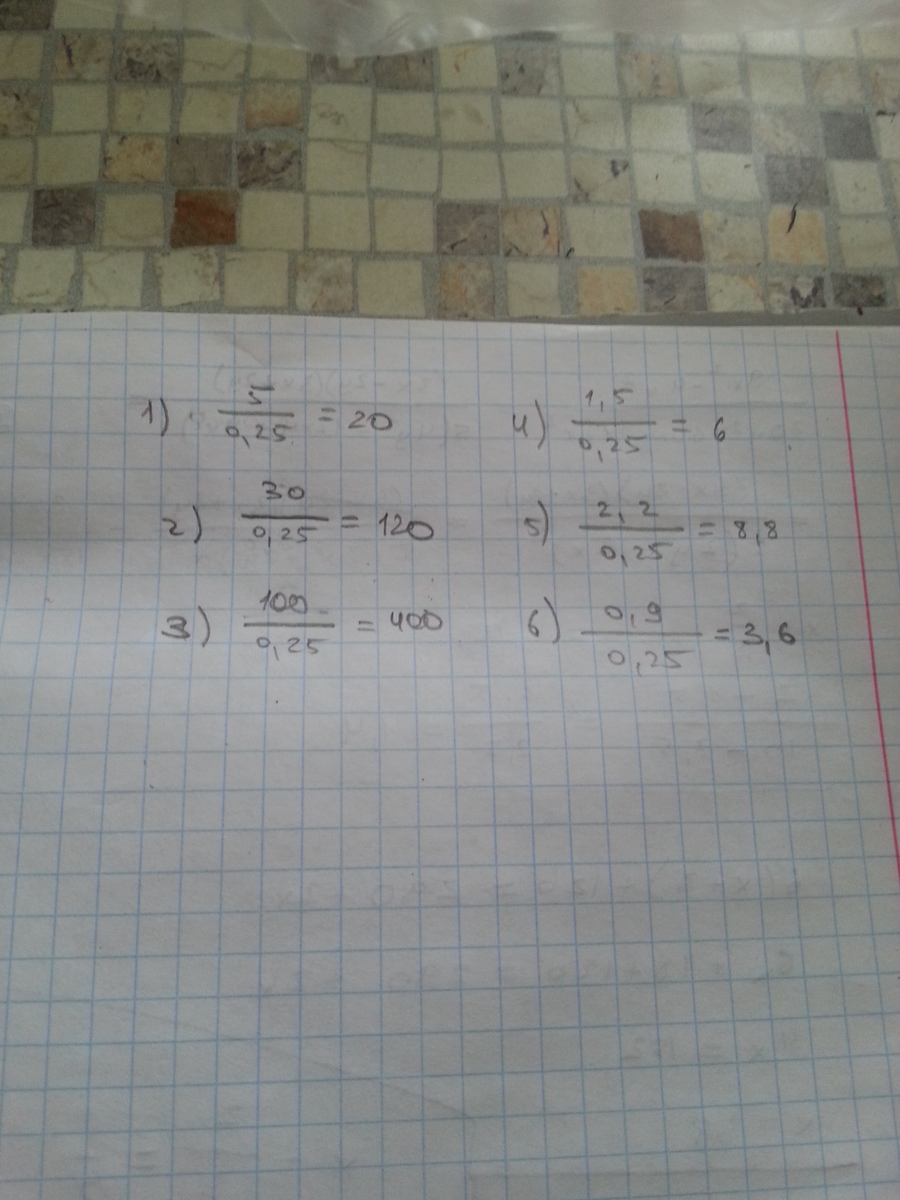 1) 5/0,25 = 20
2) 30/0,25 = 120
3) 100/0,25 = 400
4) 1,5/0,25 = 6
5) 2,2/0,25 = 8,8
6) 0,9/0,25 = 3,6